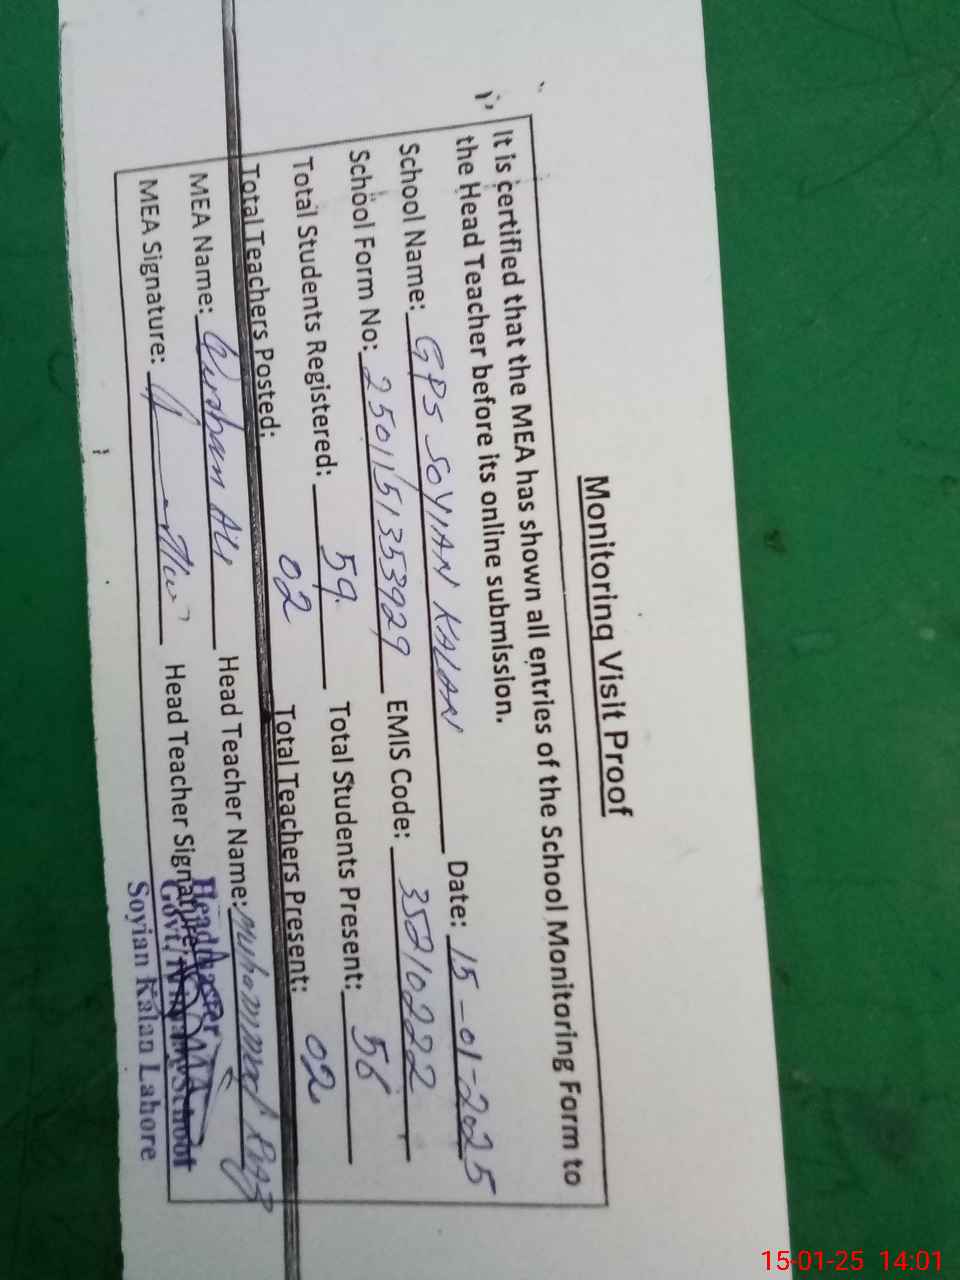 Monitoring Visit Proof
It is certified that the MEA has shown all entries of the School Monitoring Form to
the Head Teacher before its online submission.
School Name: GPS SOYIAN KALAN Date: 15-01-2025
School Form No: 2501151353929 EMIS Code: 35210222
Total Students Registered: 59 Total Students Present: 56
Total Teachers Posted: 02 Total Teachers Present: 02
MEA Name: Ali Head Teacher Name: Muhammad
MEA Signature: Head Teacher Signature:
Headmaster
Govt. Primary School
Soyian Kalan Lahore
15-01-25 14:01